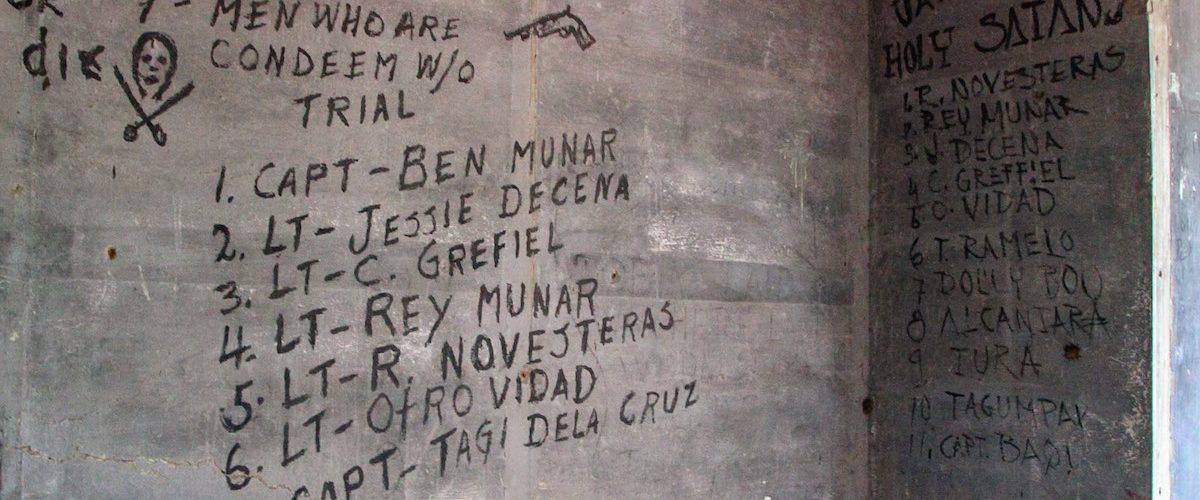 7- MEN WHO ARE
die CONDEEM W/O
TRIAL
1. CAPT - BEN MUNAR
2. LT - JESSIE DECENA
3. LT - C. GREFIEL
4. LT - REY MUNAR
5. LT - R. NOVESTERAS
6. LT - OtRO VIDAD
CAPT - TAGI DELA CRUZ
HOLY SATAN
1. R. NOVESTERAS
2. REY MUNAR
3. J. DECENA
4 C. GREFFIEL
5 O. VIDAD
6 T. RAMELO
7 DOLLY
8 ALCANTARA
9 TURA
10 TAGUMPAY
11. CAPT.